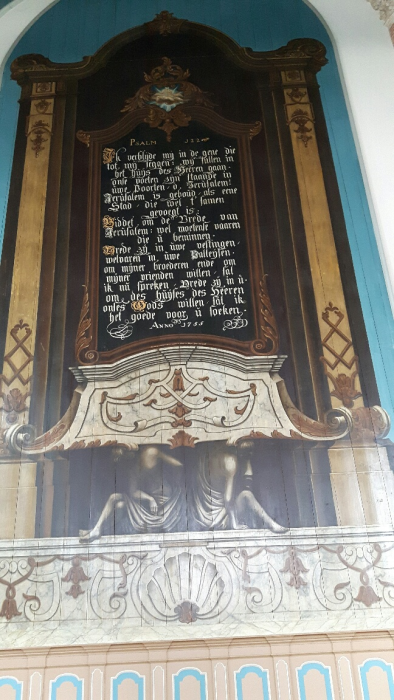 PSALM 122
Ik verblyde my in de gene die
tot my seggen: wy sullen in
het huys des Heeren gaan.
onse voeten zyn staande in
uwe Poorten, o, Jerusalem!
Jerusalem is geboud, als eene
Stad die wel t samen
gevoegt is.
Biddet om de Vrede van
Jerusalem: wel moetense vaaren
die u beminnen.
Vrede zy in uwe vestingen,
welvaren in uwe Palleysen.
om myner broederen ende om
myner vrienden willen, sal
ik nu spreken, Vrede zy in u.
om des huyses des Heeren
onses Gods willen sal ik
het goede voor u soeken.
ANNO 1755